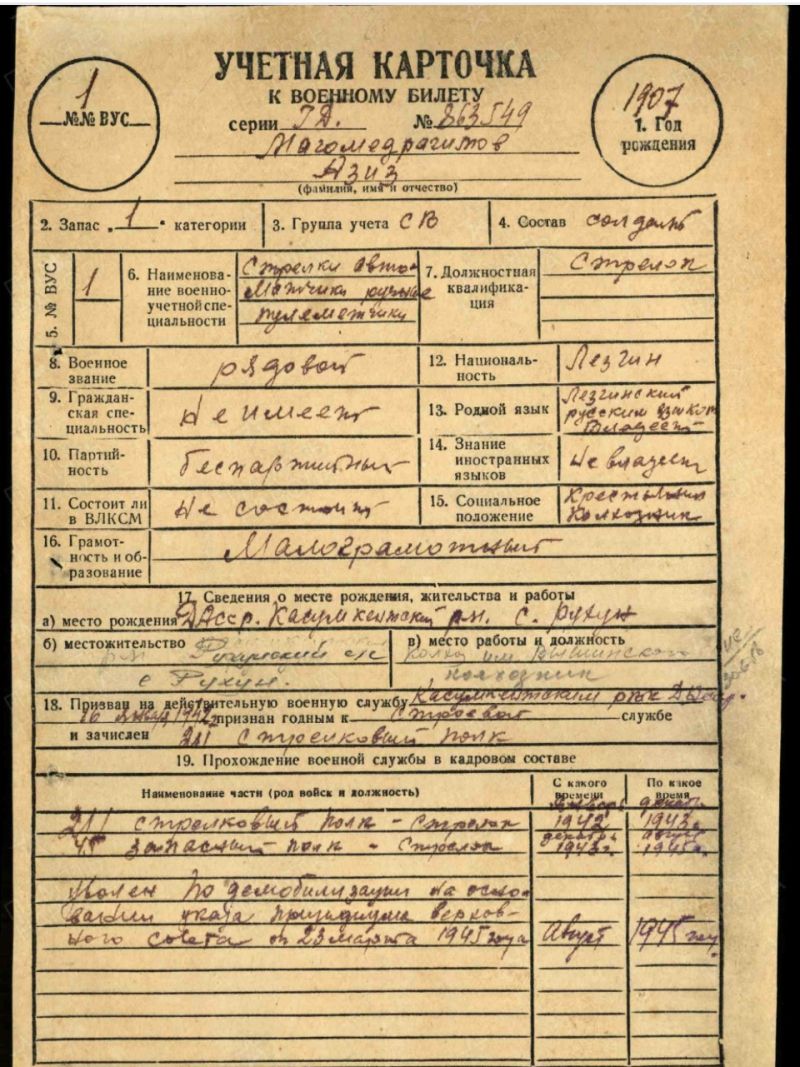 УЧЕТНАЯ КАРТОЧКА
К ВОЕННОМУ БИЛЕТУ
1
№№ ВУС
серии ГД. № 863549
1907
1. Год
рождения
Магомедрагимов
Азиз
(фамилия, имя и отчество)
2. Запас „1“ категории
3. Группа учета СВ
4. Состав солдаты
5. № ВУС
1
6. Наименова-
ние военно-
учетной спе-
циальности
Стрелки авто-
матчики ручные
пулеметчики
7. Должностная
квалифика-
ция
Стрелок
8. Военное
звание
рядовой
12. Националь-
ность
Лезгин
9. Граждан-
ская спе-
циальность
Не имеет
13. Родной язык
Лезгинский
русским языком
владеет
10. Партий-
ность
беспартийный
14. Знание
иностранных
языков
не владеет
11. Состоит ли
в ВЛКСМ
Не состоит
15. Социальное
положение
Крестьянин
колхозник
16. Грамот-
ность и об-
разование
Малограмотный
17. Сведения о месте рождения, жительства и работы
а) место рождения ДАССР. Касумкентский р-н. с. Рухун
б) местожительство
с Рухун.
в) место работы и должность
колхоз им Вышинского
колхозник
18. Призван на действительную военную службу Касумкентским рвк
16 января 1942 признан годным к строевой службе
и зачислен 211 стрелковый полк
19. Прохождение военной службы в кадровом составе
Наименование части (род войск и должность)
С какого
времени
По какое
время
211 стрелковый полк - стрелок январь 1942 декабрь 1943г
45 запасный полк - стрелок декабрь 1943г. август 1945г.
уволен по демобилизации на осно-
вании указа президиума верхов-
ного совета от 23 марта 1945 года Август 1945 году